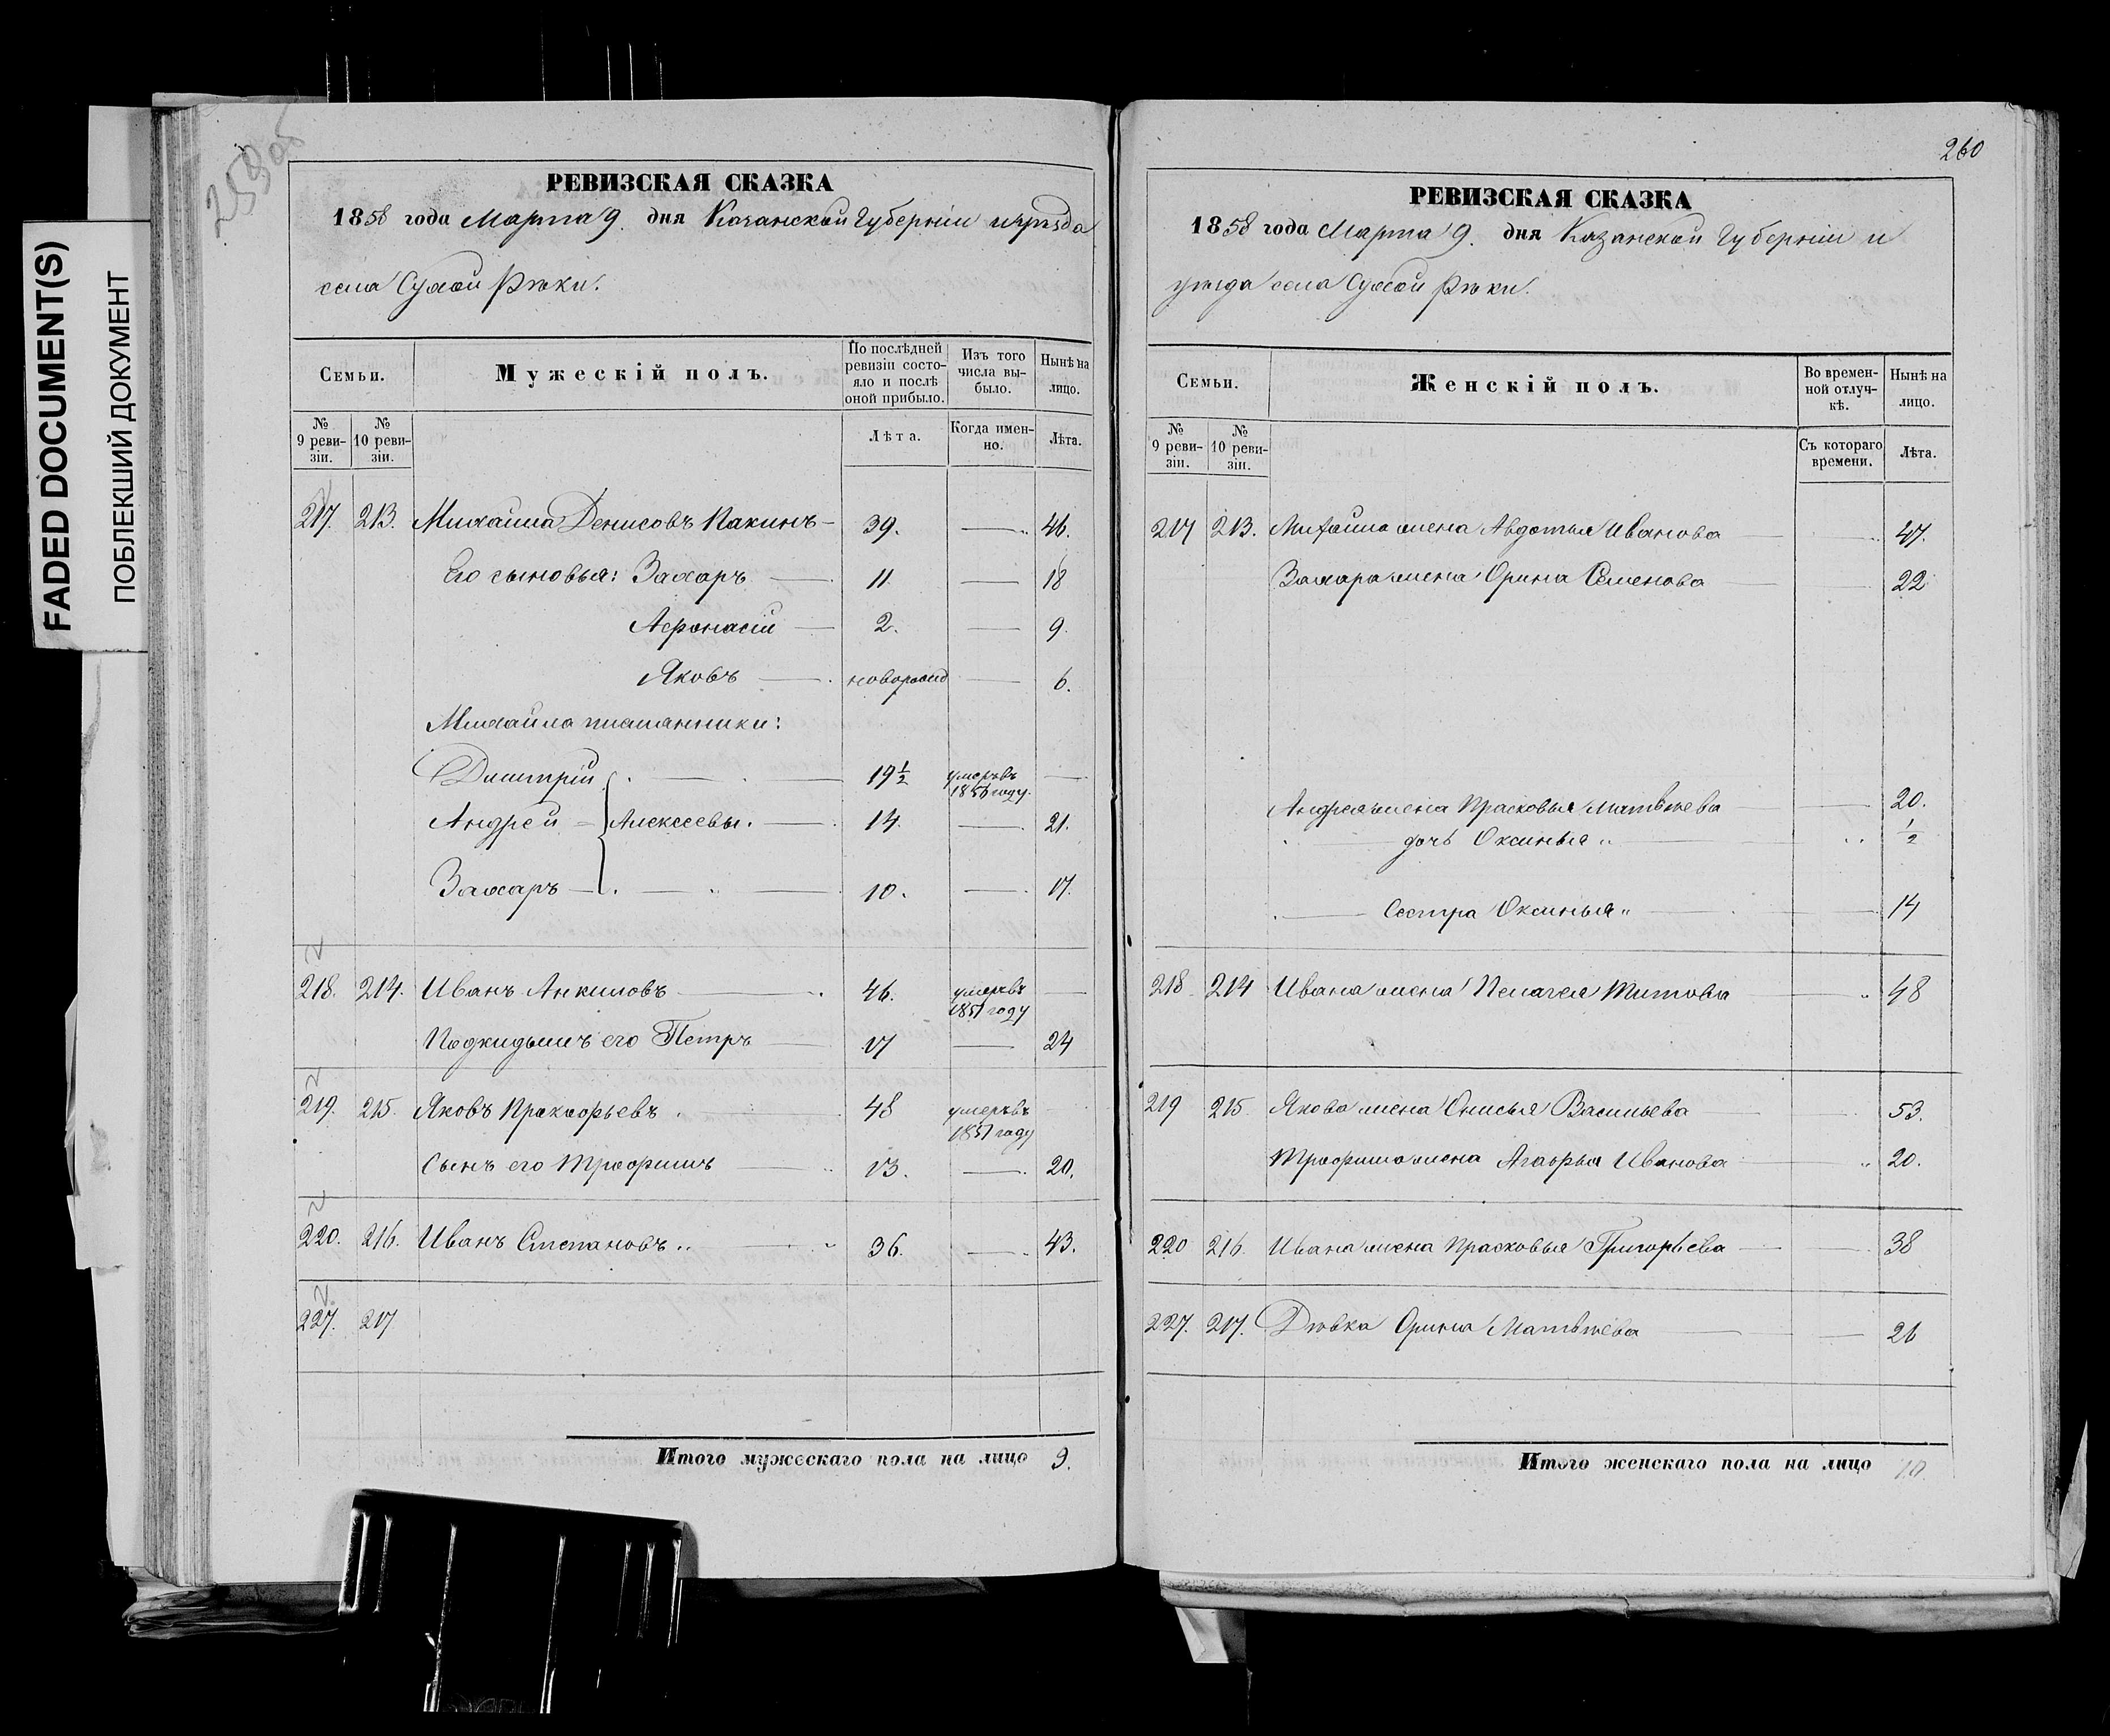 FADED DOCUMENT(S)
ПОБЛЕКШИЙ ДОКУМЕНТ
РЕВИЗСКАЯ СКАЗКА
1858 года Марта 9. дня Казанской Губерніи и уѣзда
села Сухой Рѣки.
Семьи.
Мужескій полъ.
По послѣдней ревизіи состояло и послѣ оной прибыло.
Изъ того числа выбыло.
Нынѣ на лицо.
№ 9 ревизіи.
№ 10 ревизіи.
Лѣта.
Когда именно.
Лѣта.
217. 213. Михайла Денисовъ Пакинъ 39. — 46.
Его сыновья: Захаръ — 11 — 18
Афонасій — 2. — 9.
Яковъ — новорожд — 6.
Михайла племянники:
Дмитрій — 19½ умеръ въ 1856 году. —
Андрей — Алексеевы. — 14. — 21.
Захаръ — 10. — 17.
218. 214. Иванъ Акимовъ — 46. умеръ въ 1851 году —
Подкидышъ его Петръ — 17 — 24
219. 215. Яковъ Прокофьевъ. 48 умеръ въ 1851 году
Сынъ его Трофимъ 13. — 20.
220. 216. Иванъ Степановъ 36. — 43.
227. 217
Итого мужескаго пола на лицо 9.
260
РЕВИЗСКАЯ СКАЗКА
1858 года Марта 9. дня Казанской Губерніи и
уѣзда села Сухой Рѣки.
Семьи.
Женскій полъ.
Во временной отлучкѣ.
Нынѣ на лицо.
№ 9 ревизіи.
№ 10 ревизіи.
Съ котораго времени.
Лѣта.
217 213. Михайла жена Авдотья Иванова — 47.
Захара жена Орина Семенова — 22
Андрея жена Прасковья Матвѣева — 20.
дочь Оксинья 1/2
Сестра Оксинья 14
218 214 Ивана жена Пелагея Титова — 48
219 215. Якова жена Онисья Васильева — 53.
Трофима жена Агафья Иванова 20.
220 216. Ивана жена Прасковья Григорьева — 38
227. 217. Дѣвка Орина Матвѣева — 26
Итого женскаго пола на лицо 10